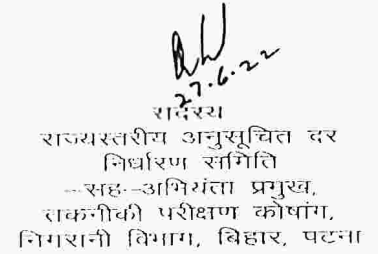 27.6.22
सदस्य
राज्यस्तरीय अनुसूचित दर
निर्धारण समिति
--सह--अभियंता प्रमुख,
तकनीकी परीक्षण कोषांग,
निगरानी विभाग, बिहार, पटना